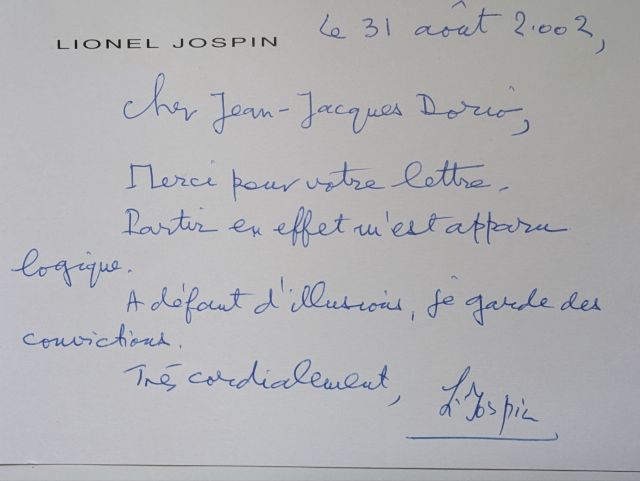 Le 31 août 2.002,
LIONEL JOSPIN
Cher Jean-Jacques Dorio,
Merci pour votre lettre.
Partir en effet m'est apparu
logique.
A défaut d'illusions, je garde des
convictions.
Très cordialement,
L. Jospin